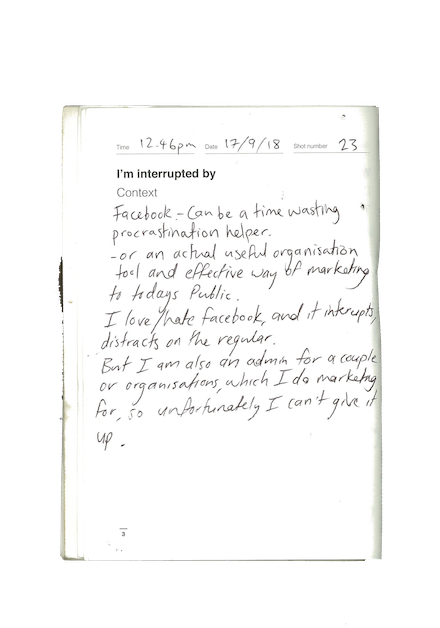 Time 12.46pm Date 17/9/18 Shot number 23
I'm interrupted by
Context
Facebook - Can be a time wasting
procrastination helper.
- or an actual useful organisation
tool and effective way of marketing
to todays Public.
I love/hate facebook, and it interupts,
distracts on the regular.
But I am also an admin for a couple
or organisations, which I do marketing
for, so unfortunately I can't give it
up.
3